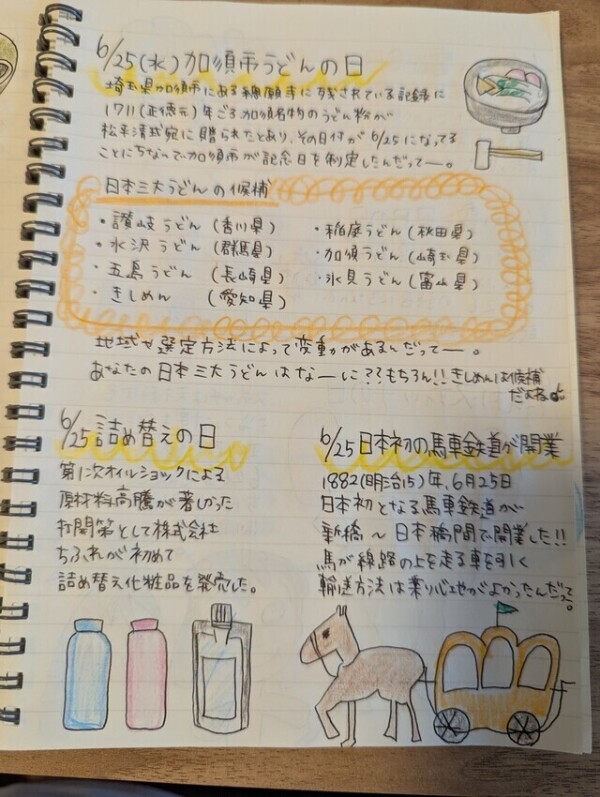 6/25(水)加須市うどんの日
埼玉県加須市にある總願寺に残されている記録に
1711(正徳元)年ごろ加須名物のうどん粉が
松平清武宛に贈られたとあり、その日付が6/25になってる
ことにちなんで加須市が記念日を制定したんだってー。
日本三大うどんの候補
・讃岐うどん(香川県)
・水沢うどん(群馬県)
・五島うどん(長崎県)
・きしめん(愛知県)
・稲庭うどん(秋田県)
・加須うどん(埼玉県)
・氷見うどん(富山県)
地域や選定方法によって変動があるんだってー。
あなたの日本三大うどんはなーに??もちろん!!きしめんは候補
だよね
6/25詰め替えの日
第1次オイルショックによる
原材料高騰が著しかった
打開策として株式会社
ちふれが初めて
詰め替え化粧品を発売した。
6/25日本初の馬車鉄道が開業
1882(明治15)年、6月25日
日本初となる馬車鉄道が
新橋~日本橋間で開業した!!
馬が線路の上を走る車を引く
輸送方法は乗り心地がよかったんだって。